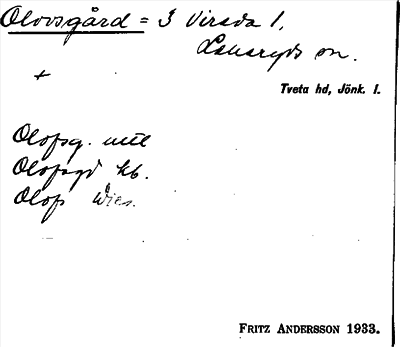 Olovsgård = 3 Virsda 1.
Lekeryds sn.
+
Tveta hd, Jönk. l.
Olofsg. mtl
Olofsgd kb.
Olofs
FRITZ ANDERSSON 1933.